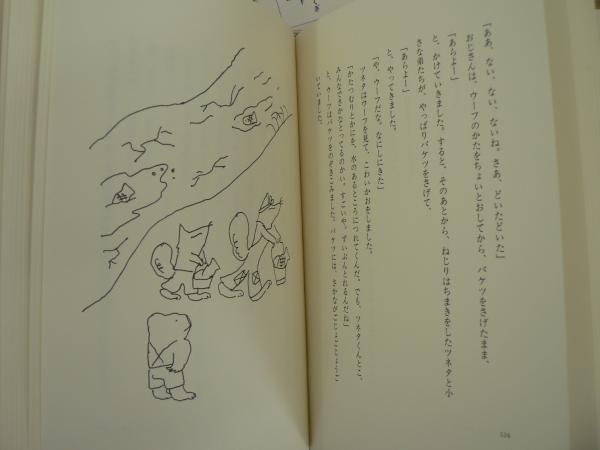 「ああ、ない、ない、ないね。さあ、どいたどいた」
おじさんは、ウーフのかたをちょいとおしてから、バケツをさげたまま、
「あらよー」
と、かけていきました。すると、そのあとから、ねじりはちまきをしたツネタと小
さな弟たちが、やっぱりバケツをさげて、
「あらよー」
と、やってきました。
「や、ウーフだな。なにしにきた」
ツネタはウーフを見て、こわいかおをしました。
「かたつむりとかにを、水のあるところにつれてくんだ。でも、ツネタくんとこ、
みんなでさかなとってるのかい。すごいや。ずいぶんとれるんだね」
と、ウーフはバケツをのぞきこみました。バケツには、さかながごじょごじょうご
いていました。